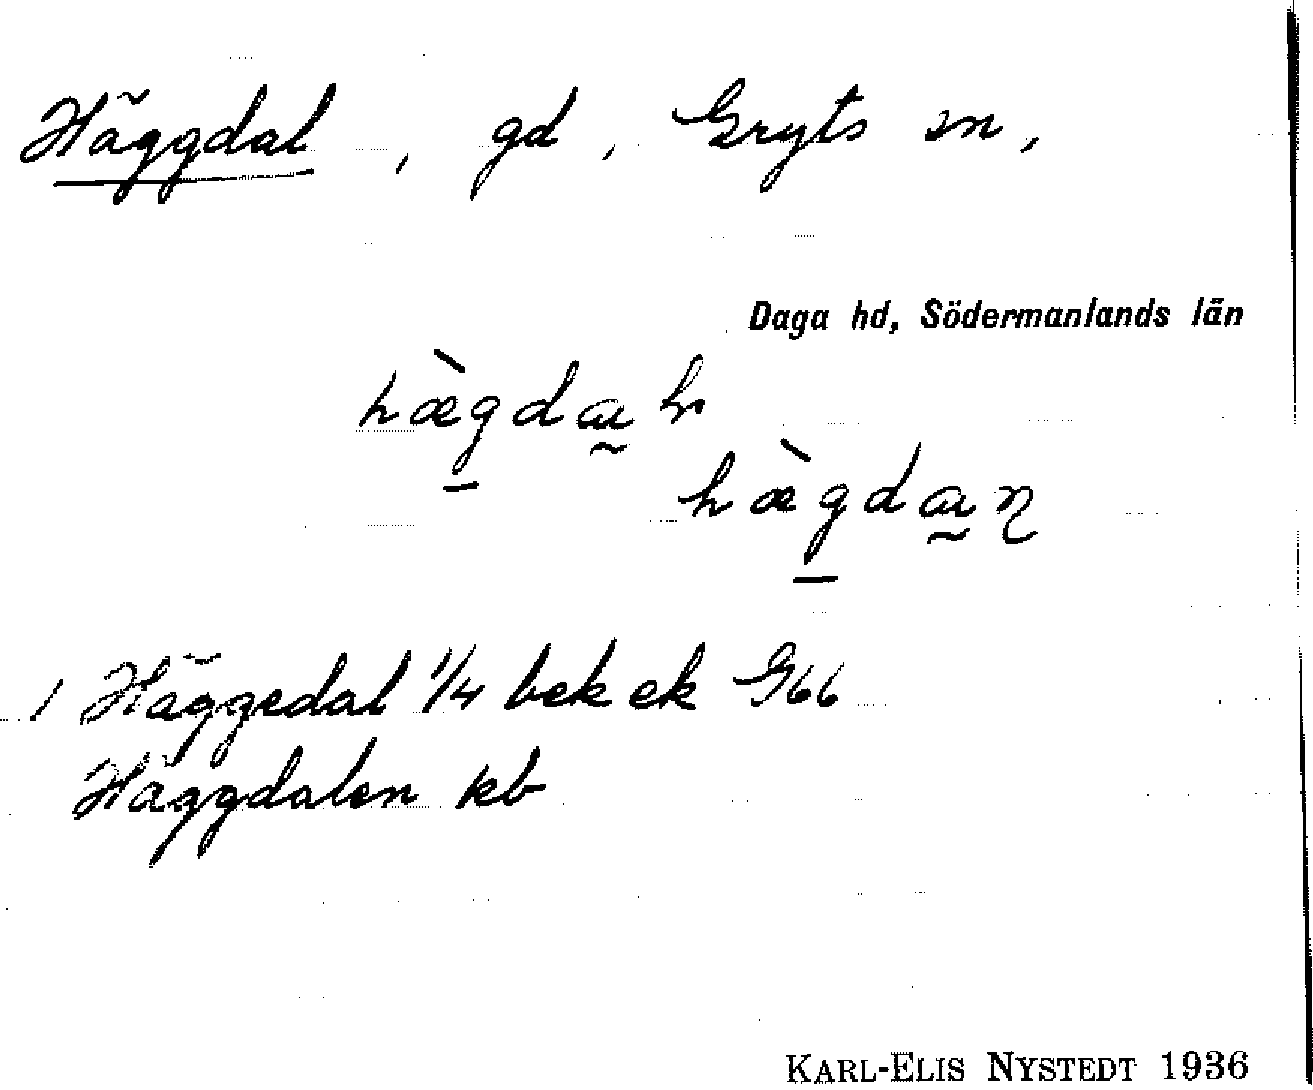 Häggdal, gd, Gryts sn,
Daga hd, Södermanlands län
hæ̀gdaɩ
hæ̀gdaɩn
1 Häggedal 1/4 bek ek G66
Häggdalen kb
KARL-ELIS NYSTEDT 1936